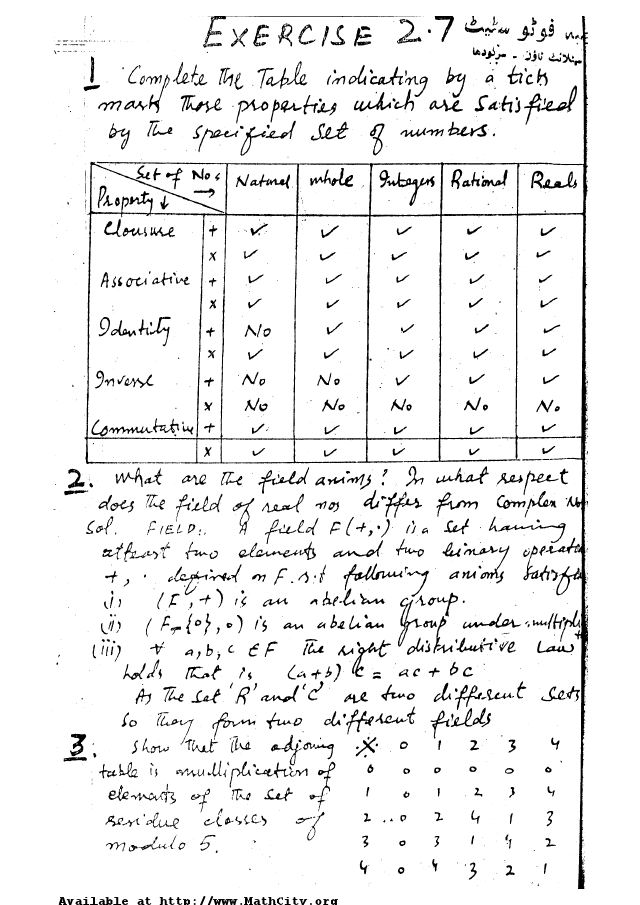 EXERCISE 2.7 فوٹو سٹیٹ
سرگودھا
1 Complete the Table indicating by a tick
mark those properties which are satisfied
by the specified set of numbers.
Set of Nos → Natural whole Integers Rational Reals
Property ↓
Clousure + ✓ ✓ ✓ ✓ ✓
x ✓ ✓ ✓ ✓ ✓
Associative + ✓ ✓ ✓ ✓ ✓
x ✓ ✓ ✓ ✓ ✓
Identity + No ✓ ✓ ✓ ✓
x ✓ ✓ ✓ ✓ ✓
Inverse + No No ✓ ✓ ✓
x No No No No No
Commutative + ✓ ✓ ✓ ✓ ✓
x ✓ ✓ ✓ ✓ ✓
2. What are the field axims? In what respect
does the field of real nos differ from Complex No
Sol. FIELD:. A field F(+,.) is a set having
atleast two elements and two binary operate
+, . defined on F. s.t following axioms satisfie
(i) (F,+) is an abelian group.
(ii) (F-{0},o) is an abelian group under multipli
(iii) ∀ a,b,c ∈ F The right distributive law
holds that is (a+b)c = ac + bc
As the set 'R' and 'C' are two different sets
so they form two different fields
3. Show that the adjoing ※ 0 1 2 3 4
table is multiplication of 0 0 0 0 0 0
elements of the set of 1 0 1 2 3 4
residue classes of 2 0 2 4 1 3
modulo 5. 3 0 3 1 4 2
4 0 4 3 2 1
Available at http://www.MathCity.org